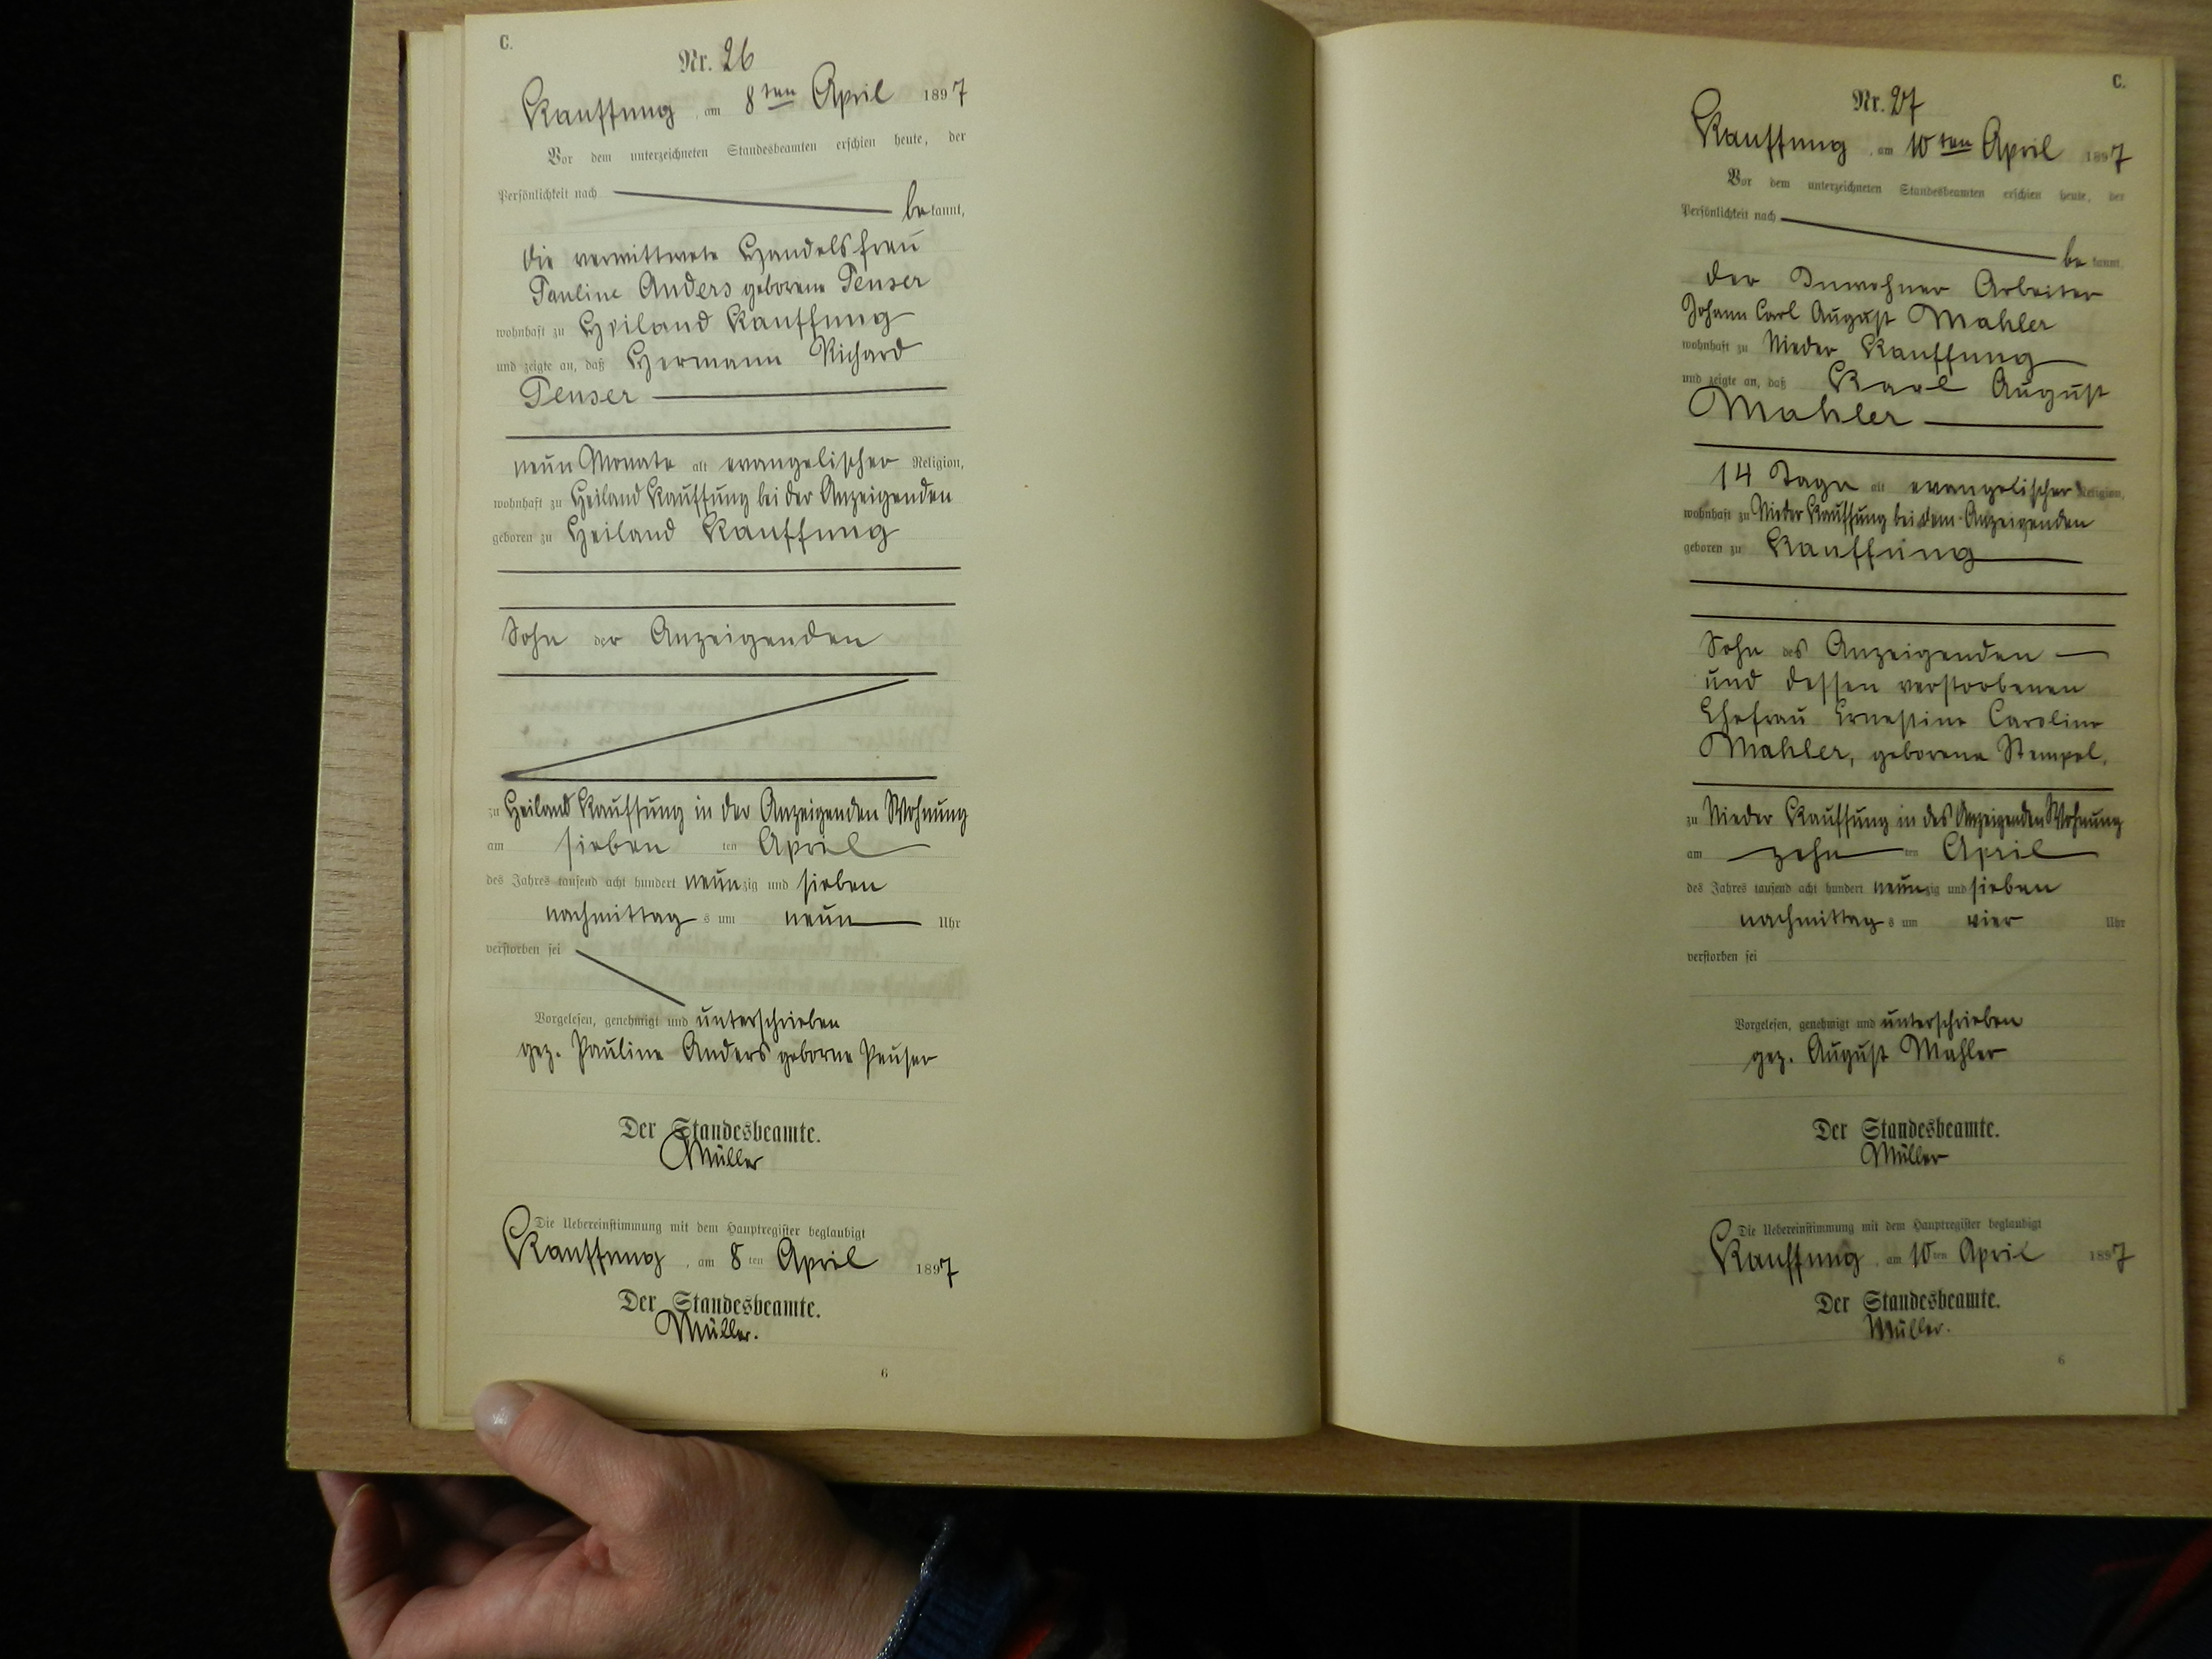 C.
Nr. 26
Kauffung, am 8ten April 1897
Vor dem unterzeichneten Standesbeamten erschien heute, der
Persönlichkeit nach
bekannt,
die verwittwete Handelsfrau
Pauline Anders geborene Peuser
wohnhaft zu Heiland Kauffung
und zeigte an, daß Hermann Richard
Peuser
neun Monate alt evangelischer Religion,
wohnhaft zu Heiland Kauffung bei der Anzeigenden
geboren zu Heiland Kauffung
Sohn der Anzeigenden
zu Heiland Kauffung in der Anzeigenden Wohnung
am sieben ten April
des Jahres tausend acht hundert neunzig und sieben
nachmittags um neun Uhr
verstorben sei
Vorgelesen, genehmigt und unterschrieben
gez. Pauline Anders geborne Peuser
Der Standesbeamte.
Müller
Die Uebereinstimmung mit dem Hauptregister beglaubigt
Kauffung, am 8ten April 1897
Der Standesbeamte.
Müller.
6
C.
Nr. 27
Kauffung, am 10ten April 1897
Vor dem unterzeichneten Standesbeamten erschien heute, der
Persönlichkeit nach
bekannt,
der Inwohner Arbeiter
Johann Carl August Mahler
wohnhaft zu Nieder Kauffung
und zeigte an, daß Karl August
Mahler
14 Tage alt evangelischer Religion,
wohnhaft zu Nieder Kauffung bei dem Anzeigenden
geboren zu Kauffung
Sohn des Anzeigenden
und dessen verstorbenen
Ehefrau Ernestine Caroline
Mahler, geborene Stempel.
zu Nieder Kauffung in des Anzeigenden Wohnung
am zehn ten April
des Jahres tausend acht hundert neunzig und sieben
nachmittags um vier Uhr
verstorben sei
Vorgelesen, genehmigt und unterschrieben
gez. August Mahler
Der Standesbeamte.
Müller
Die Uebereinstimmung mit dem Hauptregister beglaubigt
Kauffung, am 10ten April 1897
Der Standesbeamte.
Müller.
6